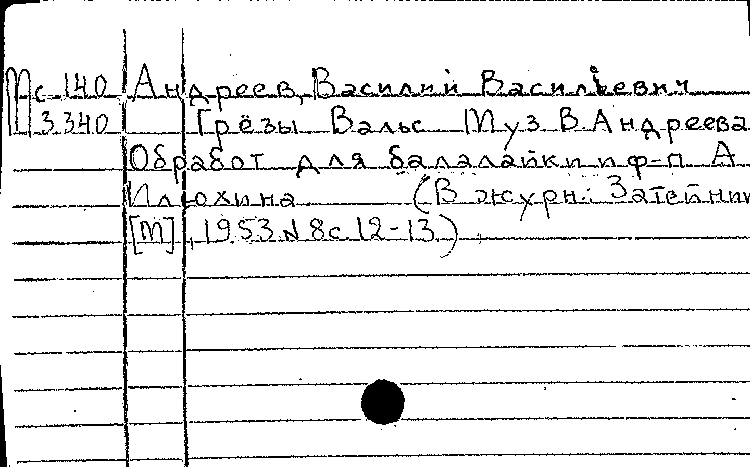 Мс 140 Андреев, Василий Васильевич
М 3340 Грёзы Вальс Муз В. Андреева
Обработ для балалайки и ф-п А
Илюхина (В журн.: Затейник
[М], 1953 № 8 с. 12-13.)